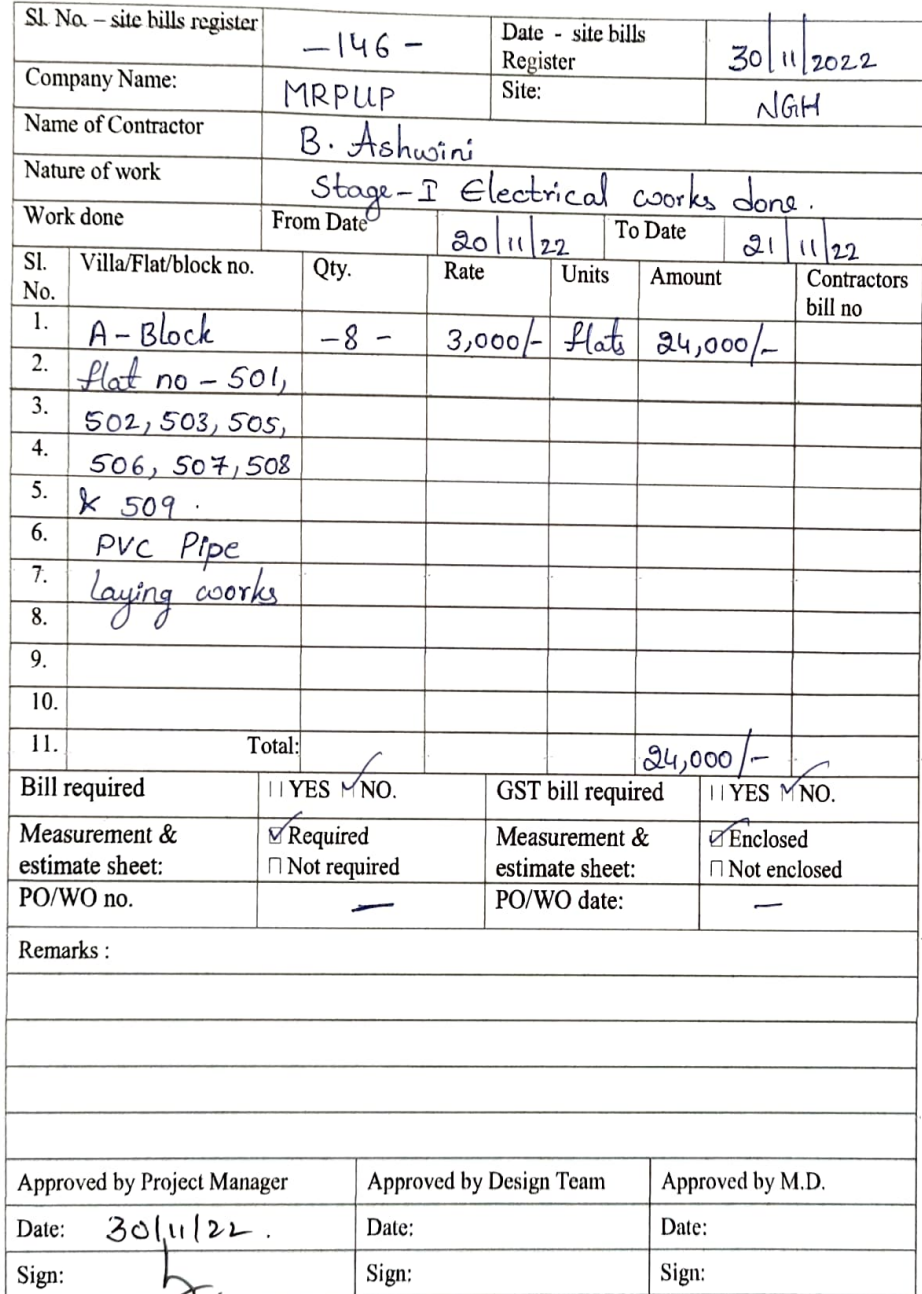 Sl. No. – site bills register -146- Date - site bills Register 30/11/2022
Company Name: MRPUP Site: NGH
Name of Contractor B. Ashwini
Nature of work Stage-I Electrical works done.
Work done From Date 20/11/22 To Date 21/11/22
Sl. No. Villa/Flat/block no. Qty. Rate Units Amount Contractors bill no
1. A-Block -8- 3,000/- flats 24,000/-
2. flat no - 501,
3. 502, 503, 505,
4. 506, 507, 508
5. & 509.
6. PVC Pipe
7. laying works
8.
9.
10.
11. Total: 24,000/-
Bill required YES NO. GST bill required YES NO.
Measurement & estimate sheet: ☑ Required Measurement & estimate sheet: ☑ Enclosed
☐ Not required ☐ Not enclosed
PO/WO no. — PO/WO date: —
Remarks :
Approved by Project Manager Approved by Design Team Approved by M.D.
Date: 30/11/22. Date: Date:
Sign: Sign: Sign: